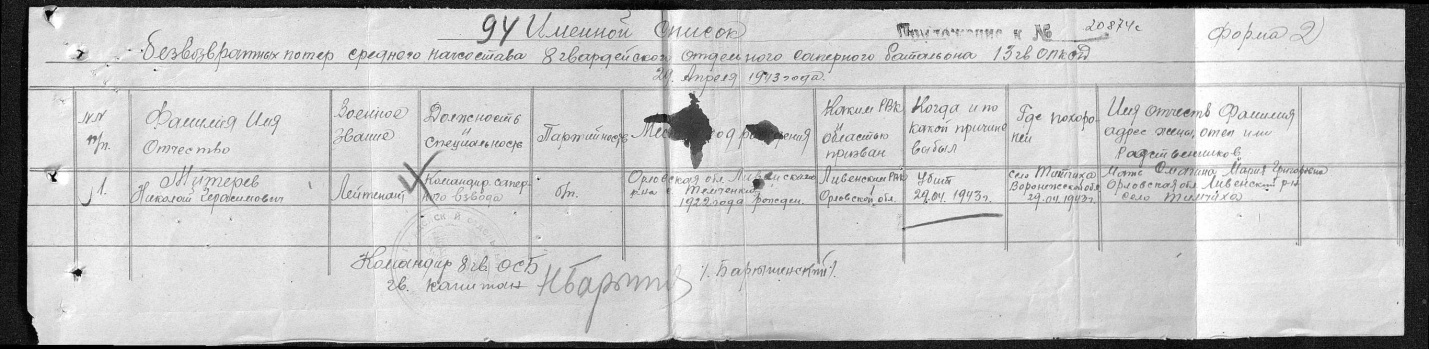 94 Именной список
Приложение к № 20874с
Форма 2
безвозвратных потер среднего начсостава 8 гвардейского отдельного саперного батальона 13 гв
Апреля 1943 года.
NN п/п.
Фамилия Имя Отчество
Военное звание
Должность и специальность
Партийность
рождения
Каким РВК и областью призван
Когда и по какой причине выбыл
Где похоронен
Имя отчеств Фамилия адрес жены, отец или родственников
1.
Николай Герасимович
Лейтенант
Командир саперного взвода
б/п.
Орловская обл. Ливенского р-на с.
1922 года рожден.
Ливенским РВК Орловской обл.
Убит 29.04.1943 г.
село Воронежской обл 29.04.1943 г.
Мать Мария Григорьевна
Орловская обл. Ливенский р-н
село
Командир 8 гв. ОСБ
гв. капитан
/. Барышенский /.